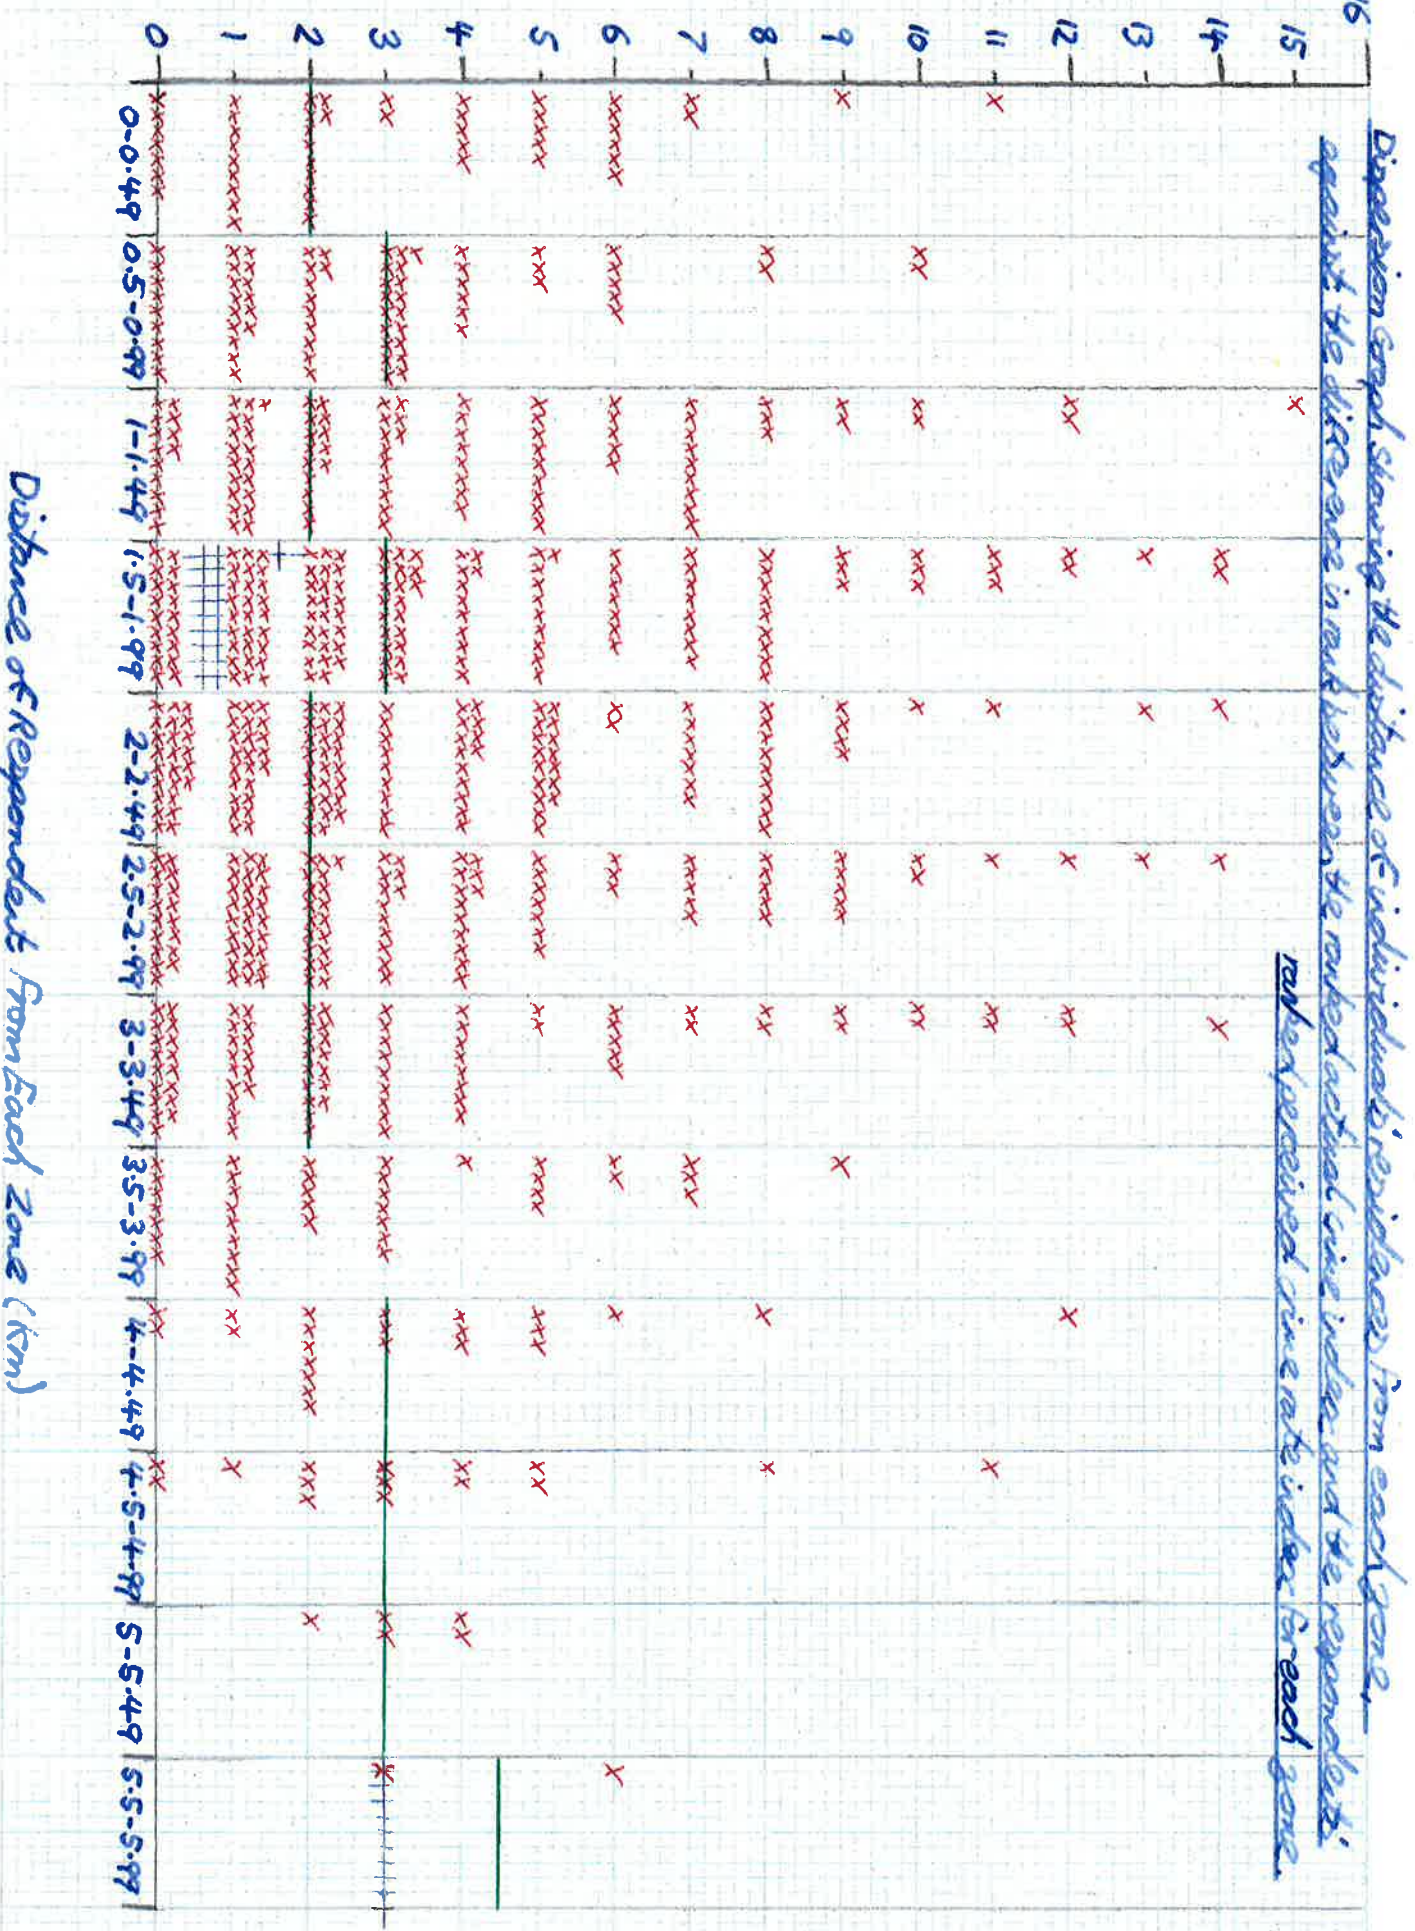 Dispersion Graph Showing the distance of individuals' residences from each zone,
against the difference in rank between the ranked actual crime index and the respondents'
ranked perceived crime rate index for each zone.
16
15
14
13
12
11
10
9
8
7
6
5
4
3
2
1
0
0-0.49 0.5-0.99 1-1.49 1.5-1.99 2-2.49 2.5-2.99 3-3.49 3.5-3.99 4-4.49 4.5-4.99 5-5.49 5.5-5.99
Distance of Respondents From Each Zone (km)